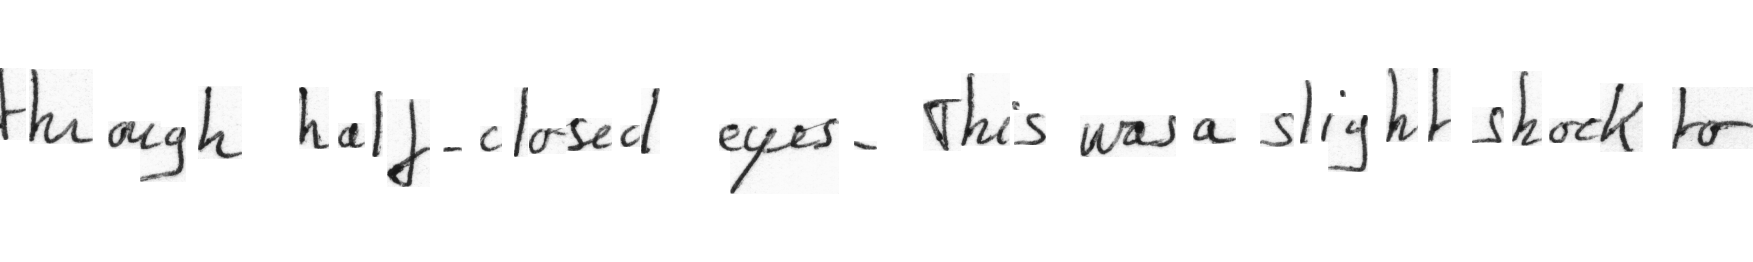 through half-closed eyes. This was a slight shock to